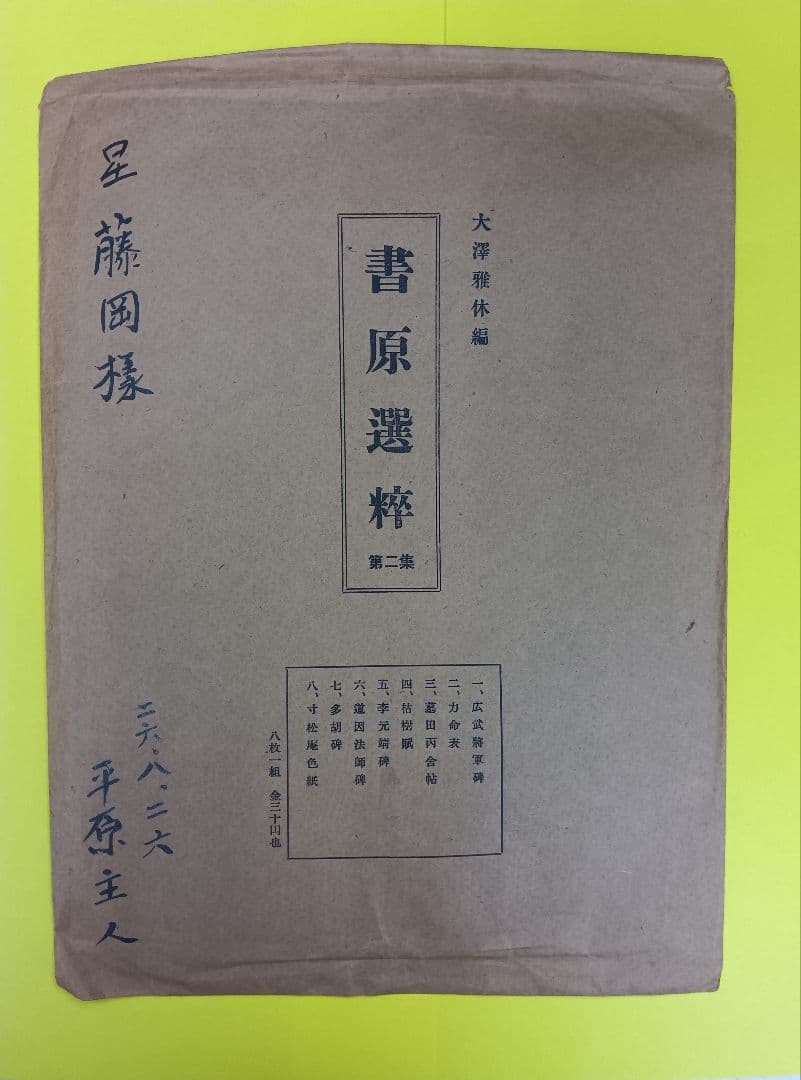 大澤雅休編
書原選粹
第二集
一、広武將軍碑
二、力命表
三、墓田丙舍帖
四、枯樹賦
五、李元靖碑
六、道因法師碑
七、多胡碑
八、寸松庵色紙
八枚一組 金三十円也
星 藤岡様
二六、八、二六
平原主人